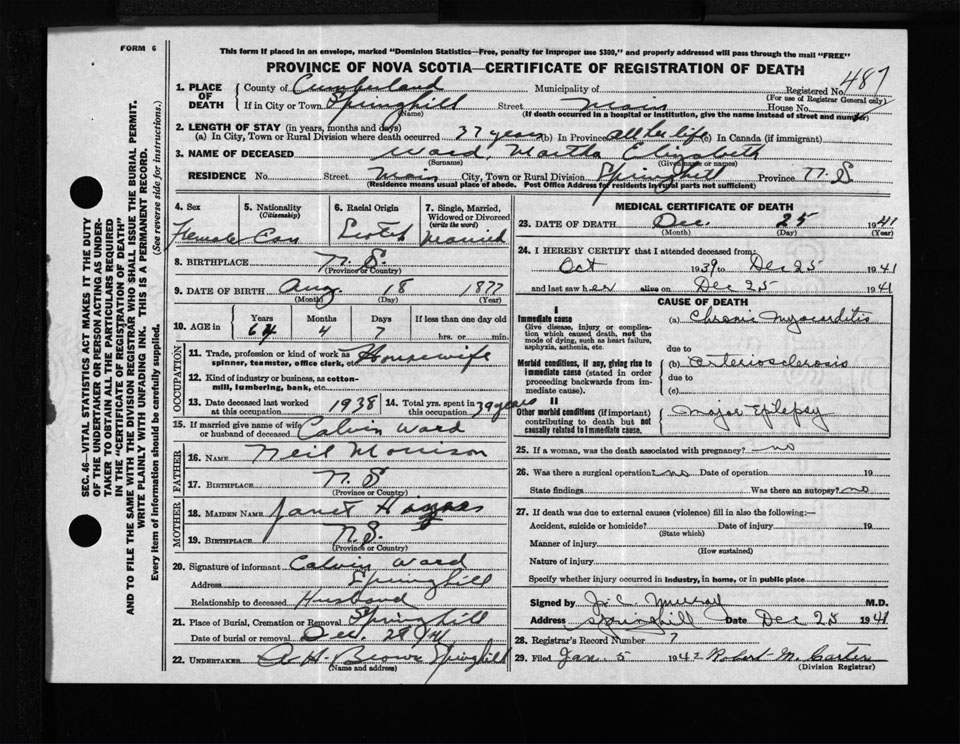 FORM 6
This form if placed in an envelope, marked "Dominion Statistics—Free, penalty for improper use $300," and properly addressed will pass through the mail "FREE"
PROVINCE OF NOVA SCOTIA—CERTIFICATE OF REGISTRATION OF DEATH
487
SEC. 46—VITAL STATISTICS ACT MAKES IT THE DUTY
OF THE UNDERTAKER OR PERSON ACTING AS UNDER-
TAKER TO OBTAIN ALL THE PARTICULARS REQUIRED
IN THE "CERTIFICATE OF REGISTRATION OF DEATH"
AND TO FILE THE SAME WITH THE DIVISION REGISTRAR WHO SHALL ISSUE THE BURIAL PERMIT.
WRITE PLAINLY WITH UNFADING INK. THIS IS A PERMANENT RECORD.
Every item of Information should be carefully supplied. (See reverse side for instructions.)
1. PLACE OF DEATH County of Cumberland Municipality of Registered No.
(For use of Registrar General only)
If in City or Town Springhill Street Main House No.
(Name) (If death occurred in a hospital or institution, give the name instead of street and number)
2. LENGTH OF STAY (in years, months and days)
(a) In City, Town or Rural Division where death occurred 37 years (b) In Province all her life (c) In Canada (if immigrant)
3. NAME OF DECEASED Ward, Martha Elizabeth
(Surname) (Given name or names)
RESIDENCE No. Street Main City, Town or Rural Division Springhill Province N. S
(Residence means usual place of abode. Post Office Address for residents in rural parts not sufficient)
4. Sex 5. Nationality (Citizenship) 6. Racial Origin 7. Single, Married, Widowed or Divorced (write the word)
Female Can Scotch Married
8. BIRTHPLACE N. S.
(Province or Country)
9. DATE OF BIRTH Aug. 18 1877
(Month) (Day) (Year)
10. AGE in Years Months Days If less than one day old
64 4 7 hrs. or min.
OCCUPATION
11. Trade, profession or kind of work as spinner, teamster, office clerk, etc. Housewife
12. Kind of industry or business, as cotton-mill, lumbering, bank, etc.
13. Date deceased last worked at this occupation 1938 14. Total yrs. spent in this occupation 39 years
15. If married give name of wife or husband of deceased Calvin Ward
FATHER
16. NAME Neil Morrison
17. BIRTHPLACE N. S
(Province or Country)
MOTHER
18. MAIDEN NAME Janet
19. BIRTHPLACE N. S.
(Province or Country)
20. Signature of informant Calvin Ward
Address Springhill
Relationship to deceased Husband
21. Place of Burial, Cremation or Removal Springhill
Date of burial or removal Dec. 28 /41
22. UNDERTAKER A H. Brown Springhill
(Name and address)
MEDICAL CERTIFICATE OF DEATH
23. DATE OF DEATH Dec. 25 1941
(Month) (Day) (Year)
24. I HEREBY CERTIFY that I attended deceased from:
Oct 1939 to Dec 25 1941
and last saw her alive on Dec 25 1941
CAUSE OF DEATH
I
Immediate cause (a) Chronic Myocarditis
Give disease, injury or complication which caused death, not the mode of dying, such as heart failure, asphyxia, asthenia, etc.
due to
Morbid conditions, if any, giving rise to immediate cause (stated in order proceeding backwards from immediate cause). (b) Arteriosclerosis
due to
(c)
II
Other morbid conditions (if important) contributing to death but not causally related to immediate cause. Major Epilepsy
25. If a woman, was the death associated with pregnancy? no
26. Was there a surgical operation? no Date of operation 19
State findings Was there an autopsy? no
27. If death was due to external causes (violence) fill in also the following:—
Accident, suicide or homicide? Date of injury 19
(State which)
Manner of injury
(How sustained)
Nature of injury
Specify whether injury occurred in industry, in home, or in public place
Signed by J. C. Murray M.D.
Address Springhill Date Dec 25 1941
28. Registrar's Record Number 7
29. Filed Jan. 5 1942 Robert M. Carter
(Division Registrar)